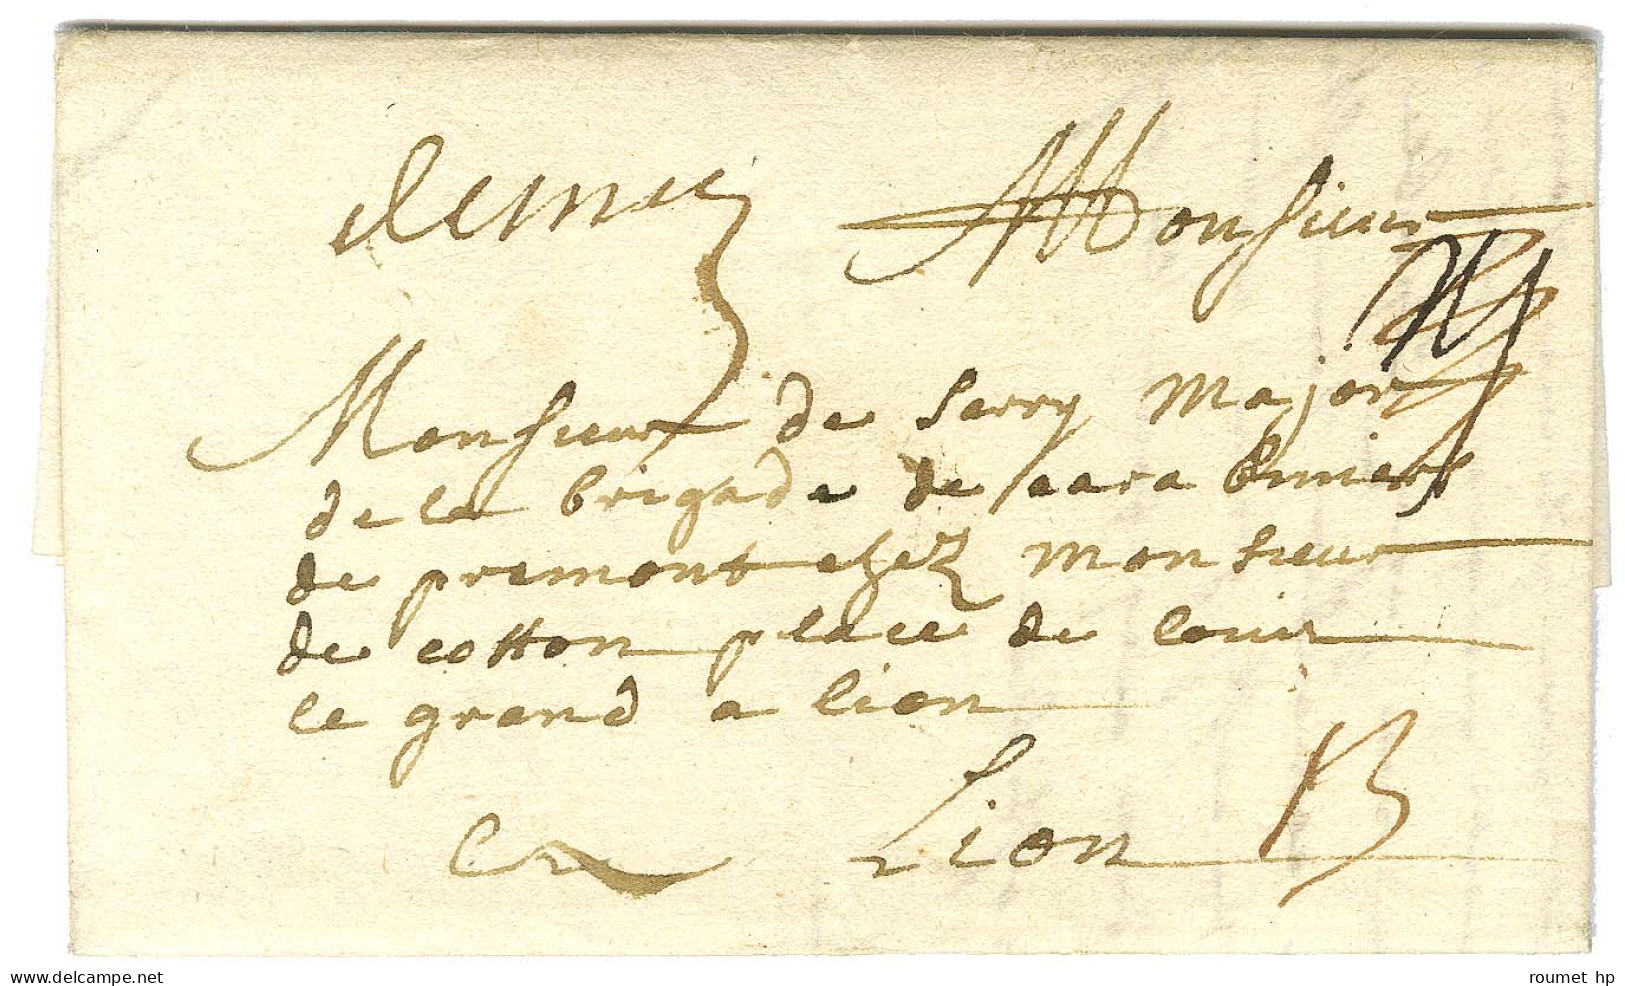 demetz Monsieur
Monsieur de serry major
de la brigade de carabiniers
de premont chez monsieur
de cotton place de louis
le grand a lion
a Lion
13
delcampe.net
roumet hp